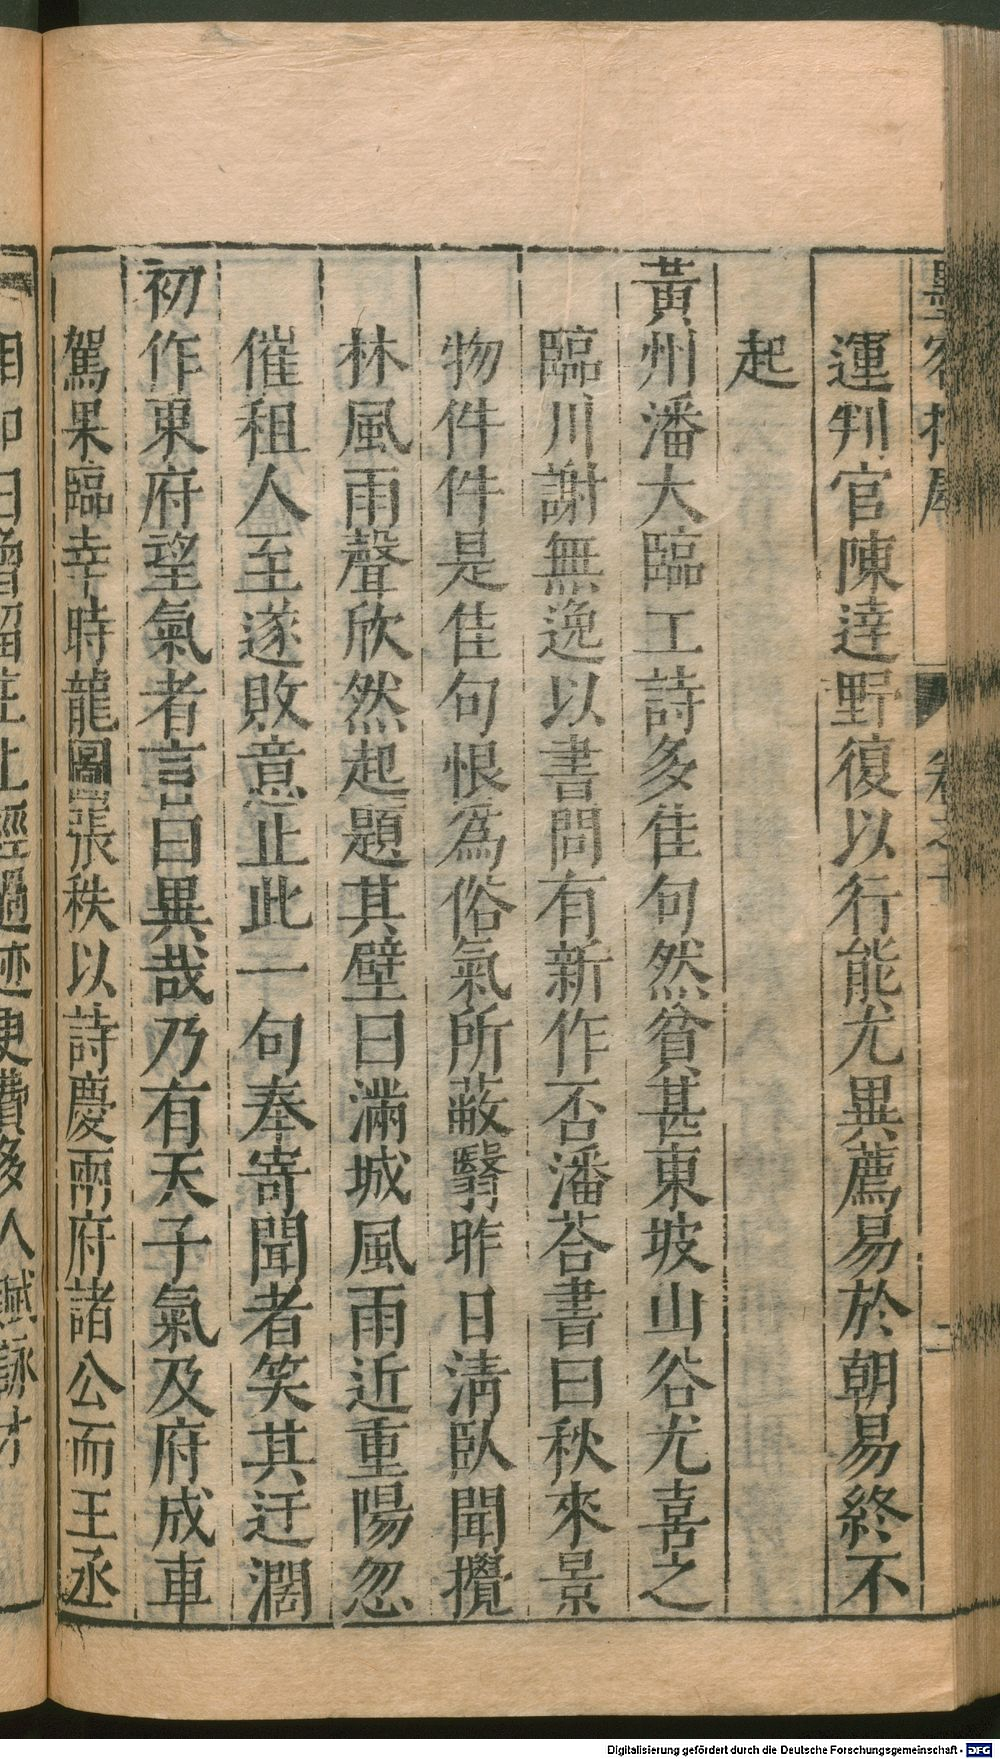 墨客揮犀 卷之十 二
運判官陳逹野復以行能尤異薦易於朝易終不
起
黃州潘大臨工詩多佳句然貧甚東坡山谷尤喜之
臨川謝無逸以書問有新作否潘荅書曰秋來景
物件件是佳句恨為俗氣所蔽翳昨日清臥聞攪
林風雨聲欣然起題其壁曰滿城風雨近重陽忽
催租人至遂敗意止此一句奉寄聞者笑其迂濶
初作東府望氣者言曰異哉乃有天子氣及府成車
駕果臨幸時龍圖張秩以詩慶兩府諸公而王丞
相即日
Digitalisierung gefördert durch die Deutsche Forschungsgemeinschaft - DFG